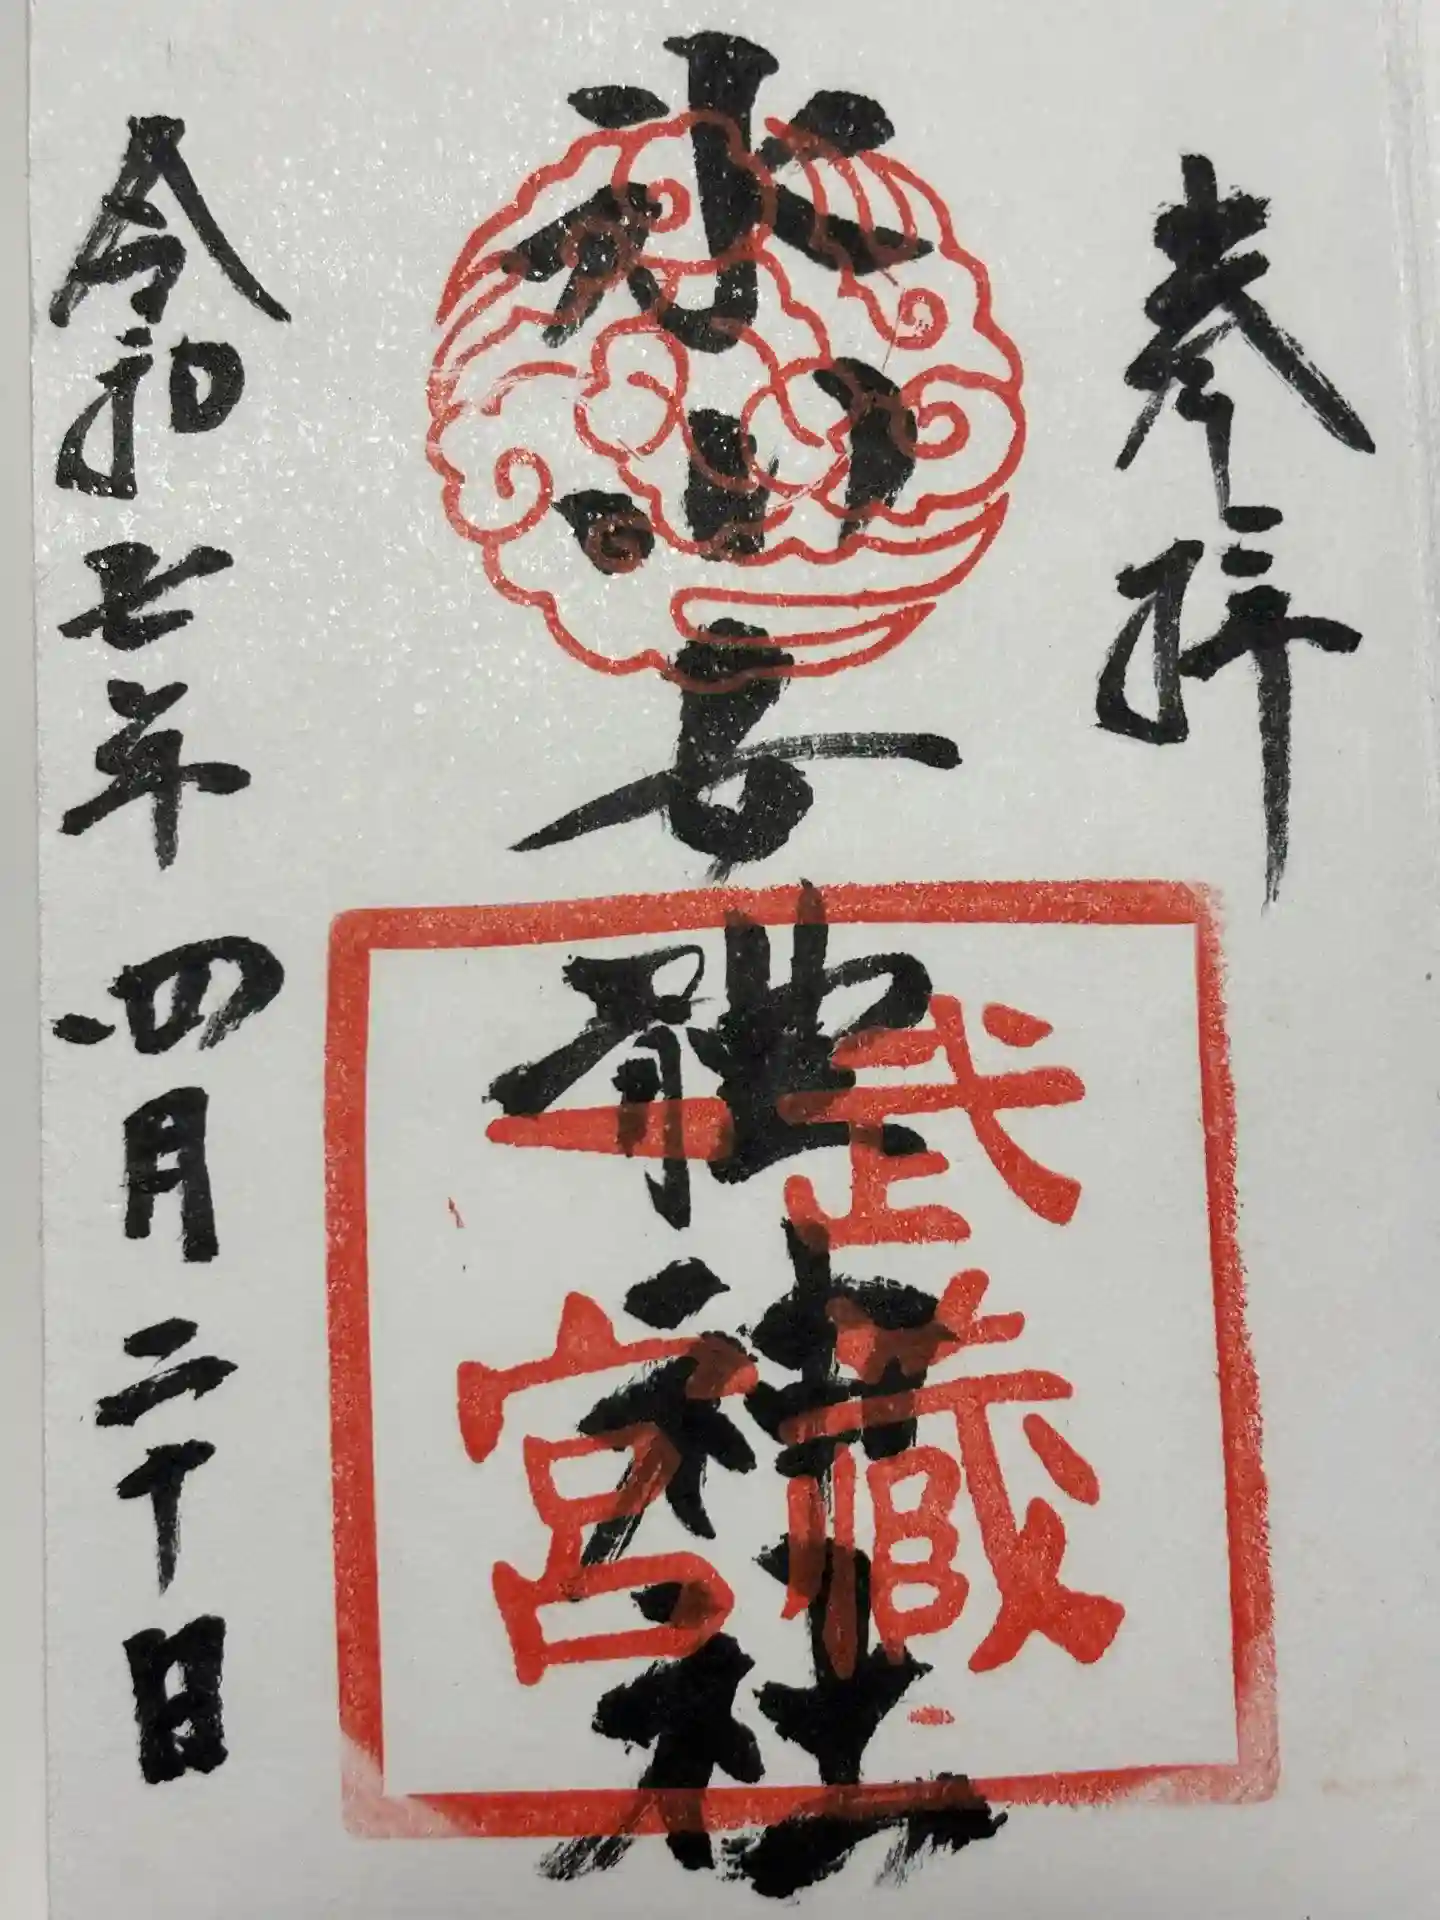 奉拝
氷川女體神社
武藏
一宮
令和七年四月二十日